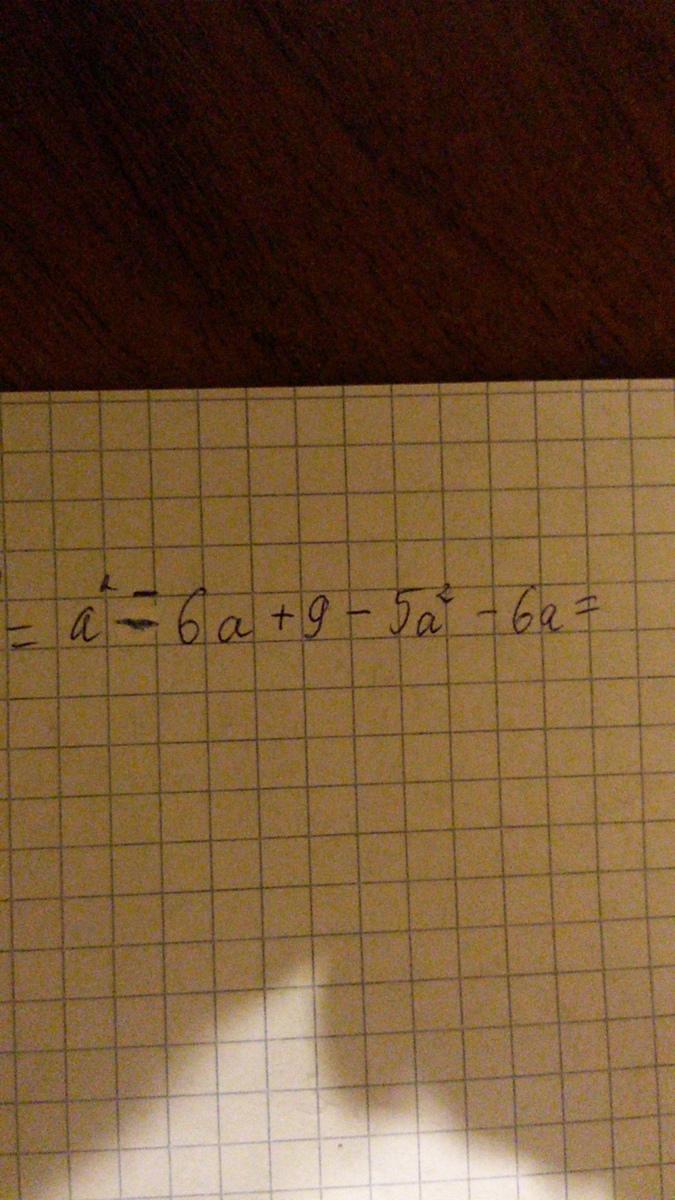 = a² - 6a + 9 - 5a² - 6a =